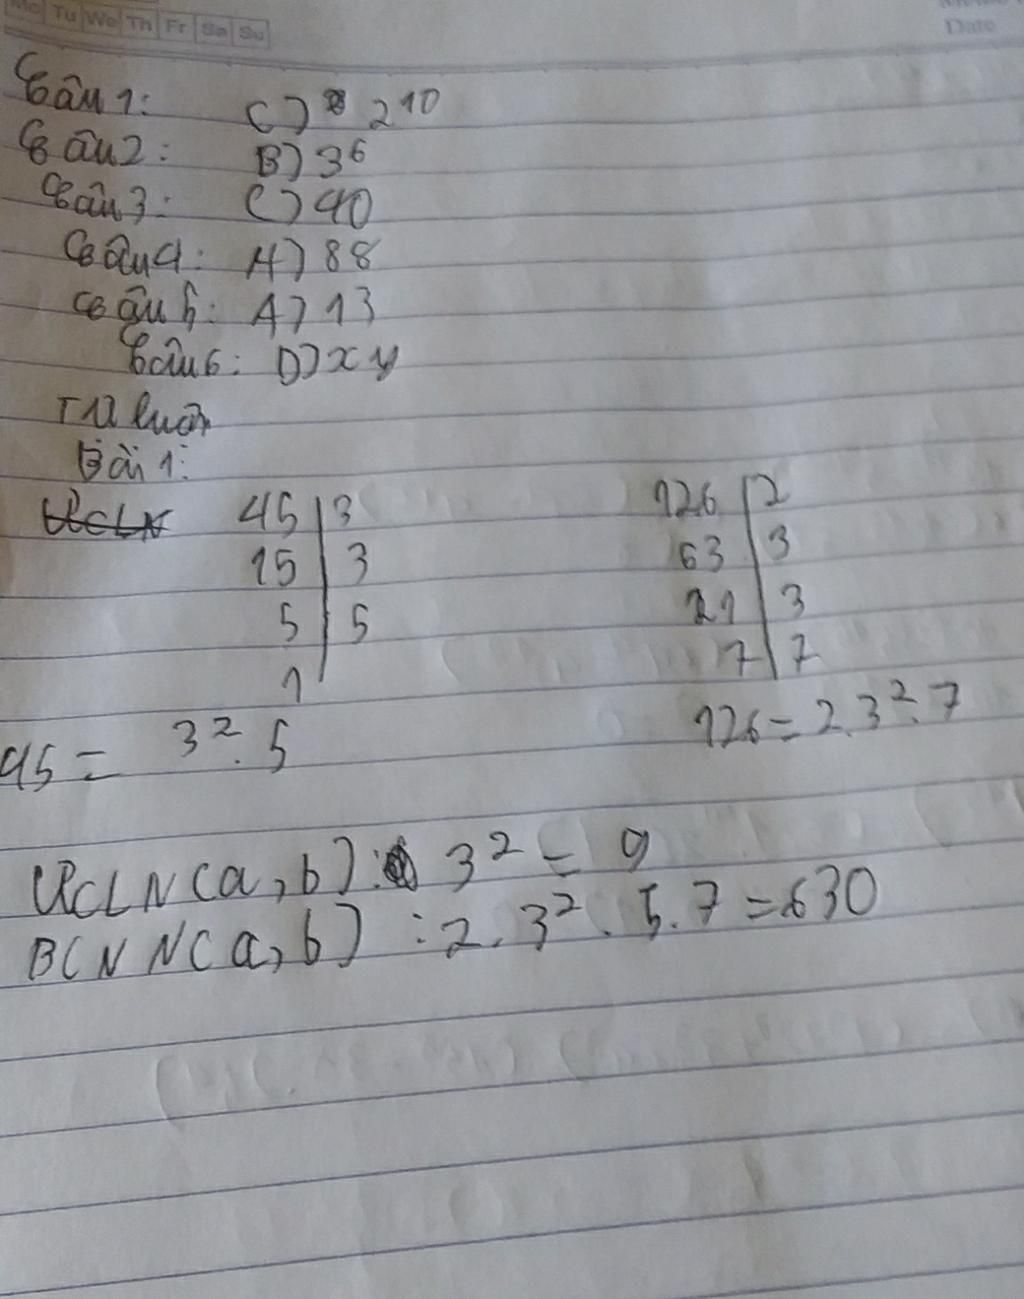 Mo Tu We Th Fr Sa Su
Date
Câu 1: C) 2¹⁰
Câu 2: B) 3⁶
Câu 3: C) 40
Câu 4: A) 88
Câu 5: A) 13
Câu 6: D) x y
Tự luận
Bài 1:
ƯCLN 45 | 3 126 | 2
15 | 3 63 | 3
5 | 5 21 | 3
1 7 | 7
45 = 3² . 5 126 = 2.3².7
ƯCLN(a,b): 3² = 9
BCNN(a,b) : 2.3².5.7 = 630